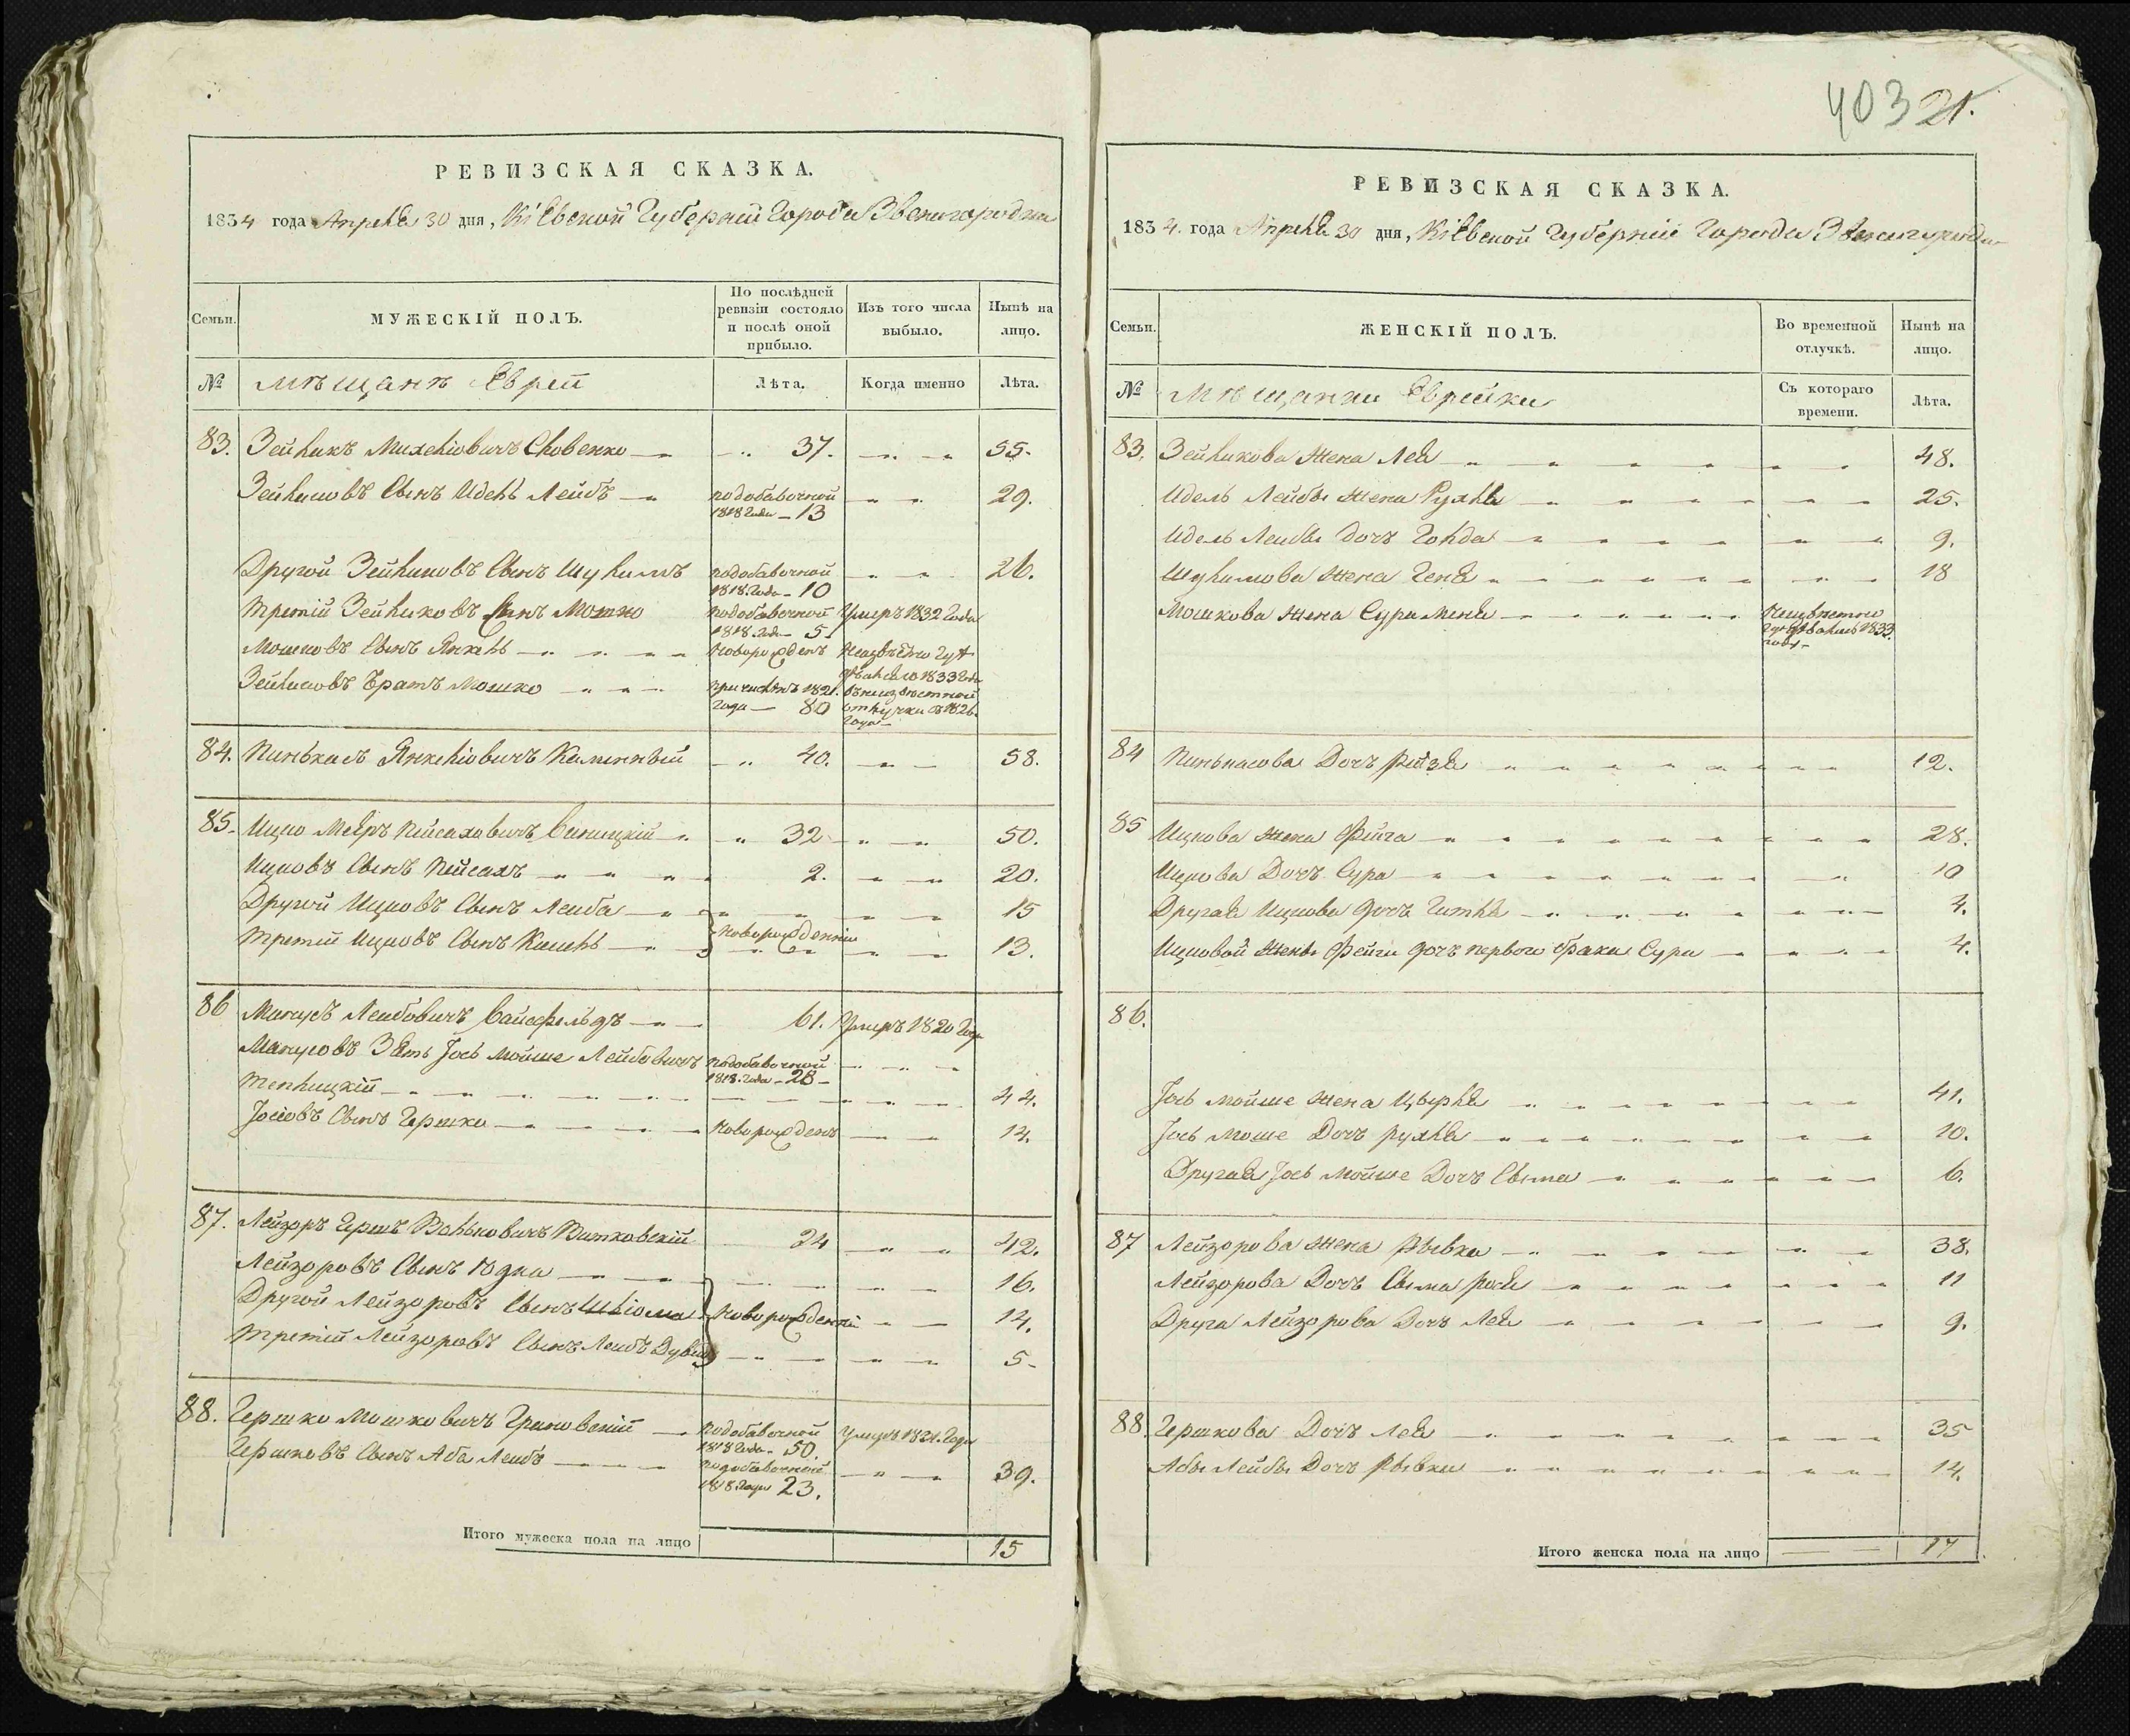 403 21.
РЕВИЗСКАЯ СКАЗКА.
1834 года Апреля 30 дня, Кіевской Губерніи Города Звенигородки
Семьи.
МУЖЕСКІЙ ПОЛЪ.
По послѣдней ревизіи состояло и послѣ оной прибыло.
Изъ того числа выбыло.
Нынѣ на лицо.
№
Мѣщанъ Еврей
Лѣта.
Когда именно
Лѣта.
83. Зейликъ Михеліовичъ 37. 55.
Зейликовъ Сынъ Идель Лейбъ подобавочной 1818 Года 13 29.
Другой Зейликовъ Сынъ Шулимъ подобавочной 1818 Года 10 26.
Третій Зейликовъ Сынъ Мошко подобавочной 1818 Года 5 Умеръ 1832 Года
Мошковъ Сынъ Янкель новорожденъ Неизвѣстно гдѣ 1833 Года
Зейликовъ Братъ Мошко причисленъ 1821. Года 80 в неизвѣстной отлучки съ 1826. Года
84. Пинькасъ Янкеліовичъ Каминный 40. 58.
85. Ицко Мееръ Пейсаховичъ Виницкій 32 50.
Ицковъ Сынъ Пейсахъ 2. 20.
Другой Ицковъ Сынъ Лейба 15
новорожденніи
Третій Ицковъ Сынъ 13.
86 Манусъ Лейбовичъ Вайсфельдъ 61. Умеръ 1820 Года
Манусовъ Зять Іось Мойше Лейбовичъ подобавочной 1818. Года 28
Теплицкій 44.
Іосіовъ Сынъ Гершко новорожденъ 14.
87. Лейзоръ Гершъ Вольковичъ Витковскій 24 42.
Лейзоровъ Сынъ Юдка 16.
Другой Лейзоровъ Сынъ Шліома новорожденніи 14.
Третій Лейзоровъ Сынъ Лейбъ Дувидъ 5
88. Гершко Мошковичъ Грановскій подобавочной 1818 Года 50. Умеръ 1821. Года
Гершковъ Сынъ Аба Лейбъ подобавочной 1818. Года 23. 39.
Итого мужеска пола на лицо 15
РЕВИЗСКАЯ СКАЗКА.
1834. года Апреля 30 дня, Кіевской Губерніи Города Звенигородки
Семьи.
ЖЕНСКІЙ ПОЛЪ.
Во временной отлучкѣ.
Нынѣ на лицо.
№
Мѣщанки Еврейки
Съ котораго времени.
Лѣта.
83. Зейликова Жена Лея 48.
Идель Лейбы Жена Рухля 25.
Идель Лейбы Дочъ Голда 9.
Шулимова Жена Геня 18
Мошкова Жена Сура Меня Неизвѣстно гдѣ 1833
84 Пинькасова Дочъ Рейзя 12.
85 Ицкова Жена Фейга 28.
Ицкова Дочъ Сура 10
Другая Ицкова дочъ Гитля 4.
Ицковой Жены Фейги дочъ первого брака Сура 4.
86.
Іось Мойше Жена Цырля 41.
Іось Моше Дочъ Рухля 10.
Другая Іось Мойше Дочъ Сыма 6.
87 Лейзорова Жена Рывка 38.
Лейзорова Дочъ Сыма Рося 11
Друга Лейзорова Дочъ Лея 9.
88. Гершкова Дочъ Лея 35
Абы Лейбы Дочъ Рывки 14.
Итого женска пола на лицо 17